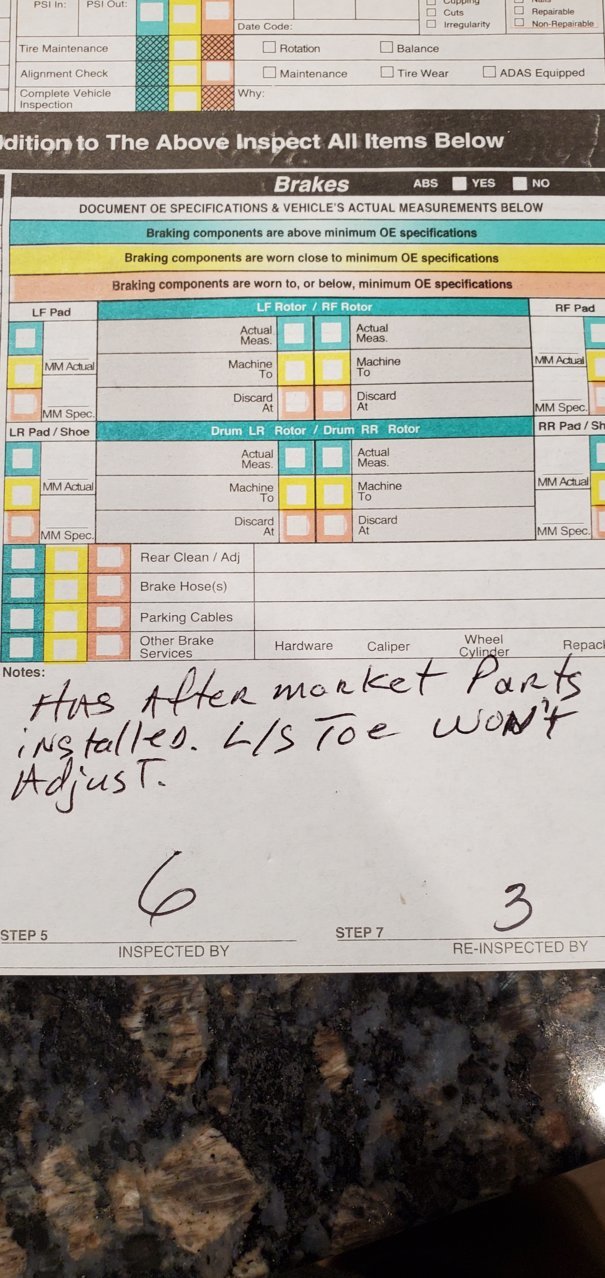 PSI In: PSI Out:
Date Code:
Cuts Repairable
Irregularity Non-Repairable
Tire Maintenance Rotation Balance
Alignment Check Maintenance Tire Wear ADAS Equipped
Complete Vehicle Inspection Why:
dition to The Above Inspect All Items Below
Brakes ABS YES NO
DOCUMENT OE SPECIFICATIONS & VEHICLE'S ACTUAL MEASUREMENTS BELOW
Braking components are above minimum OE specifications
Braking components are worn close to minimum OE specifications
Braking components are worn to, or below, minimum OE specifications
LF Pad LF Rotor / RF Rotor RF Pad
Actual Meas. Actual Meas.
MM Actual Machine To Machine To MM Actual
MM Spec. Discard At Discard At MM Spec.
LR Pad / Shoe Drum LR Rotor / Drum RR Rotor RR Pad / Sh
Actual Meas. Actual Meas.
MM Actual Machine To Machine To MM Actual
MM Spec. Discard At Discard At MM Spec.
Rear Clean / Adj
Brake Hose(s)
Parking Cables
Other Brake Services Hardware Caliper Wheel Cylinder Repack
Notes:
HAS AfteR market PaRts
iNstalleD. L/S Toe WON't
AdjusT.
6 3
STEP 5 STEP 7
INSPECTED BY RE-INSPECTED BY